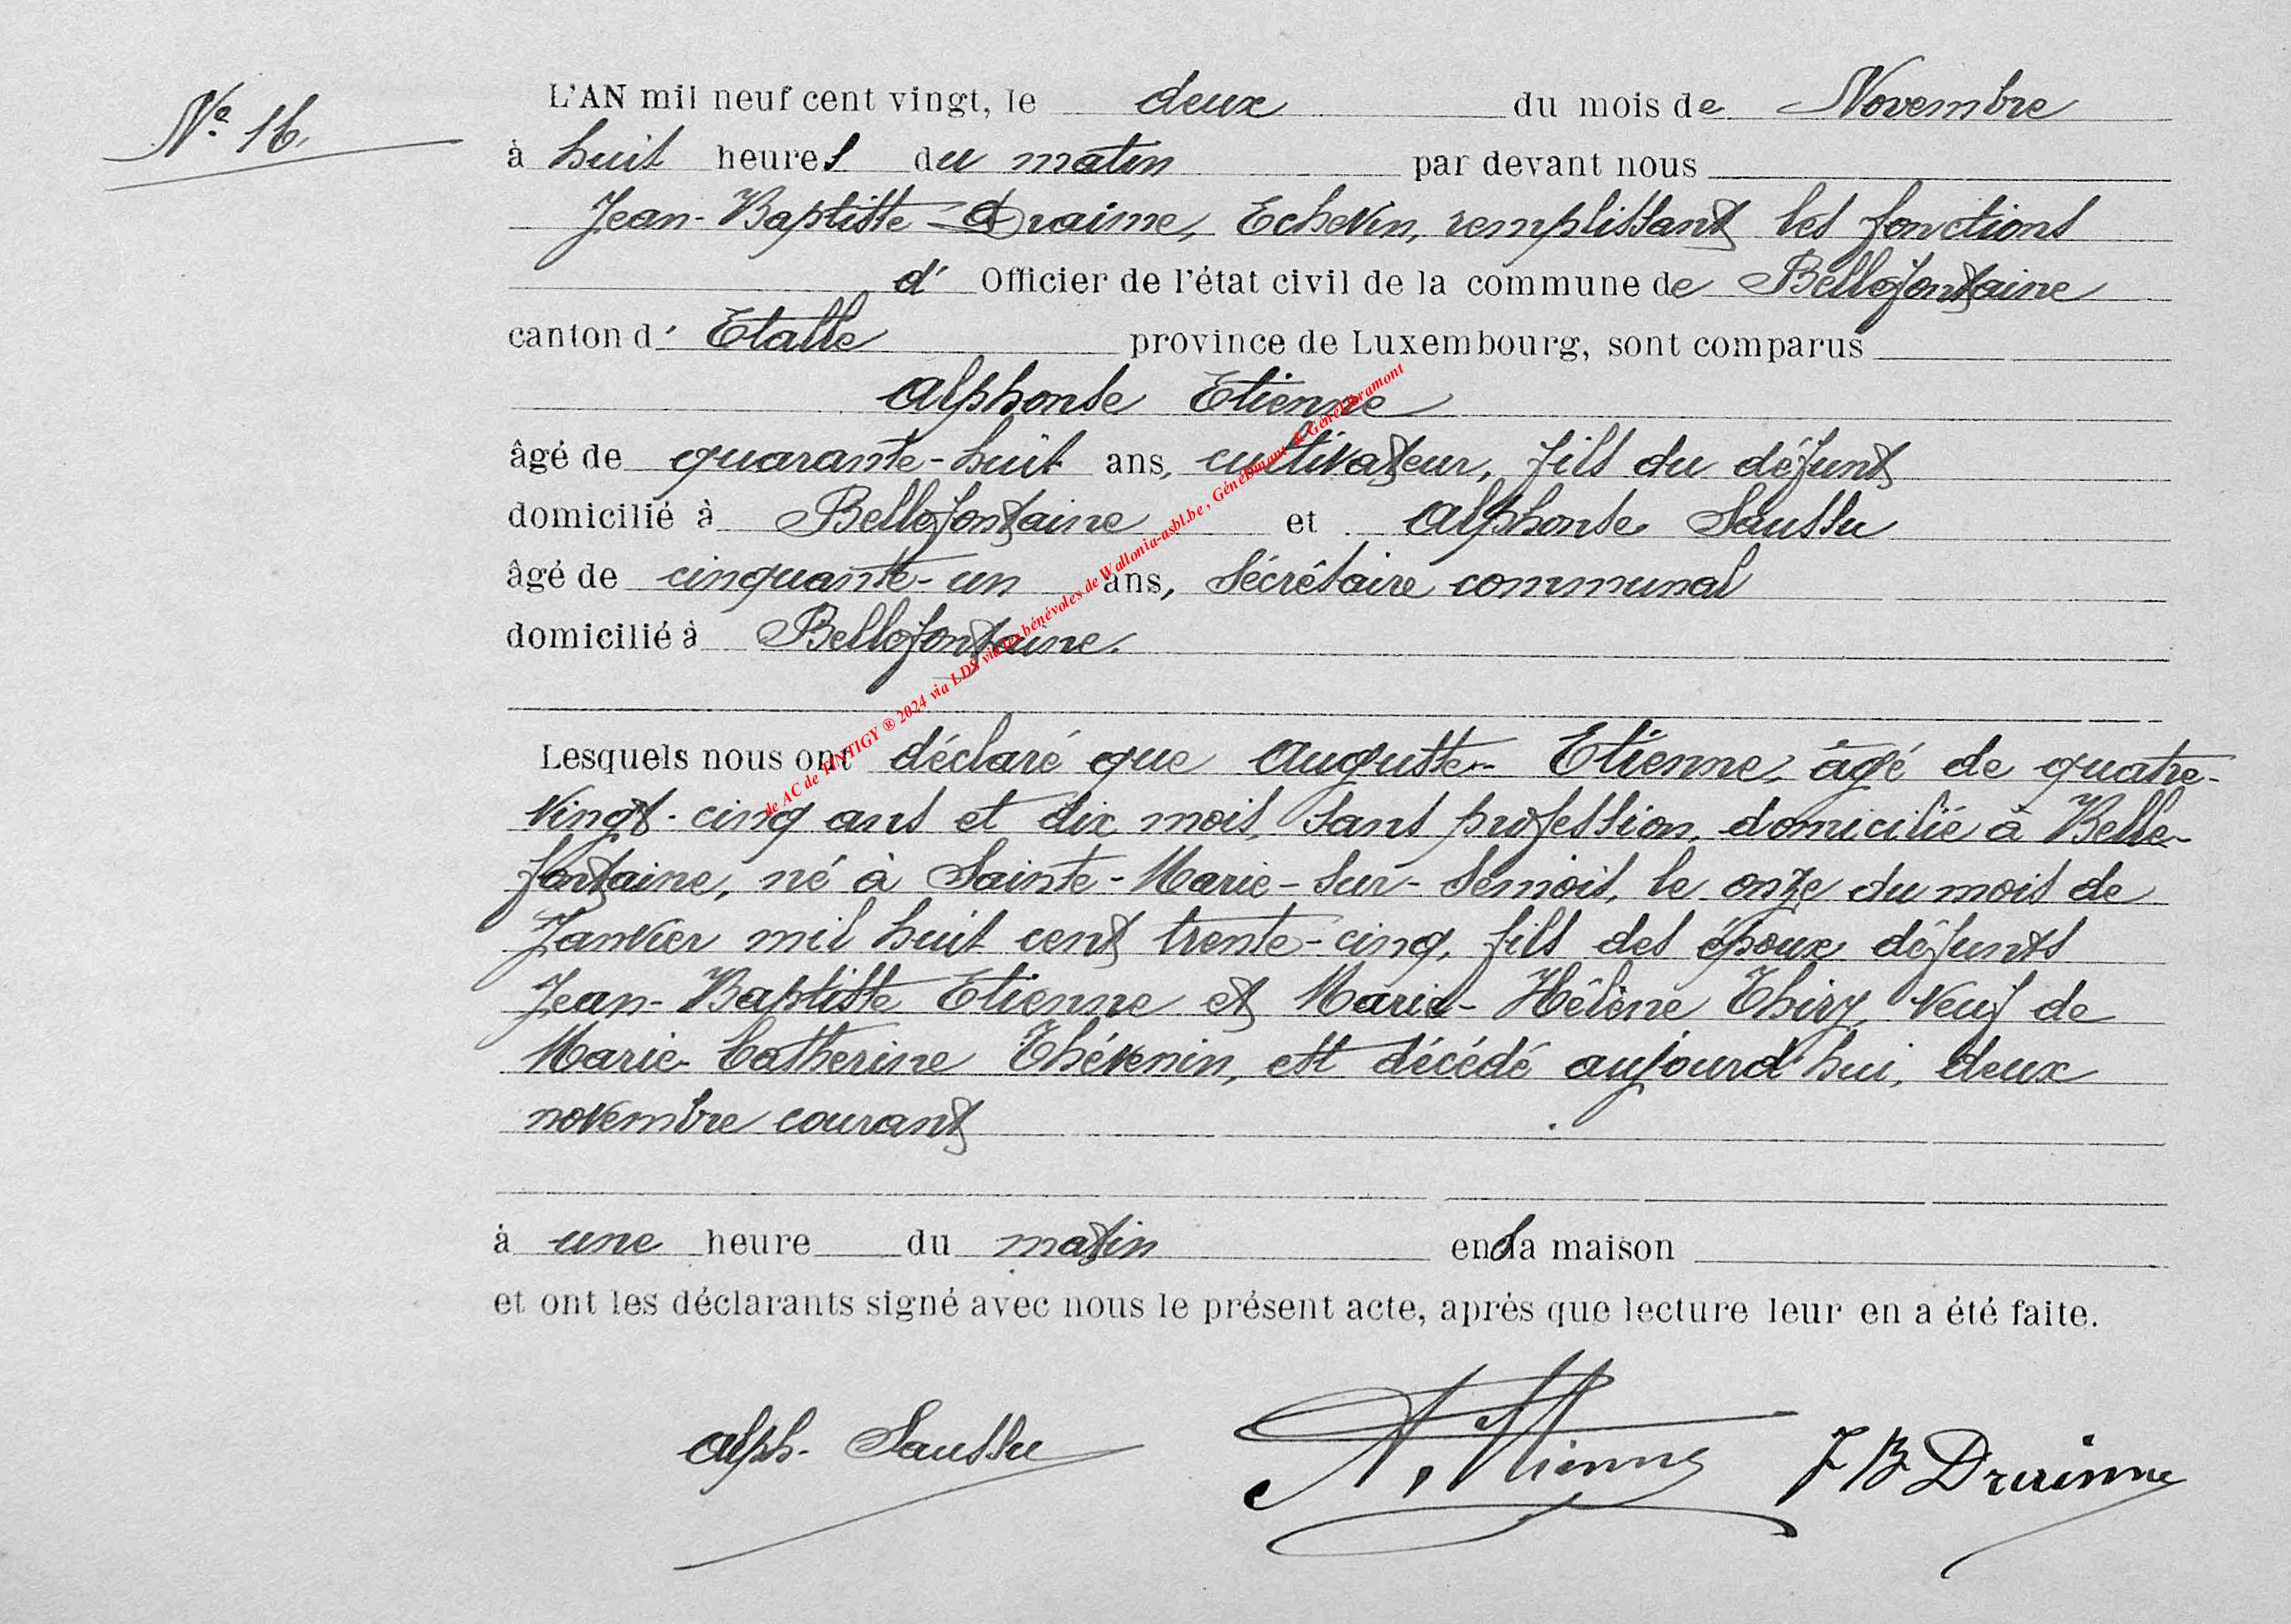 Nº 16.
L'AN mil neuf cent vingt, le deux du mois de Novembre
à huit heures du matin par devant nous
Jean-Baptiste Draime, Echevin, remplissant les fonctions
d' Officier de l'état civil de la commune de Bellefontaine
canton d' Etalle province de Luxembourg, sont comparus
Alphonse Etienne
âgé de quarante-huit ans, cultivateur, fils du défunt
domicilié à Bellefontaine et Alphonse Saussu
âgé de cinquante-un ans, Sécrétaire communal
domicilié à Bellefontaine.
Lesquels nous ont déclaré que Auguste Etienne, âgé de quatre-
vingt-cinq ans et dix mois, sans profession, domicilié à Belle-
fontaine, né à Sainte-Marie-sur-Semois, le onze du mois de
Janvier mil huit cent trente-cinq, fils des époux défunts
Jean-Baptiste Etienne et Marie-Hélène Thiry, veuf de
Marie-Catherine Thévenin, est décédé aujourd'hui, deux
novembre courant
à une heure du matin en sa maison
et ont les déclarants signé avec nous le présent acte, après que lecture leur en a été faite.
Alph. Saussu A. Etienne J B Draime
de AC de TINTIGY ® 2024 via LDS via les bénévoles de Wallonia-asbl.be , GénéDinant & GénéLibramont